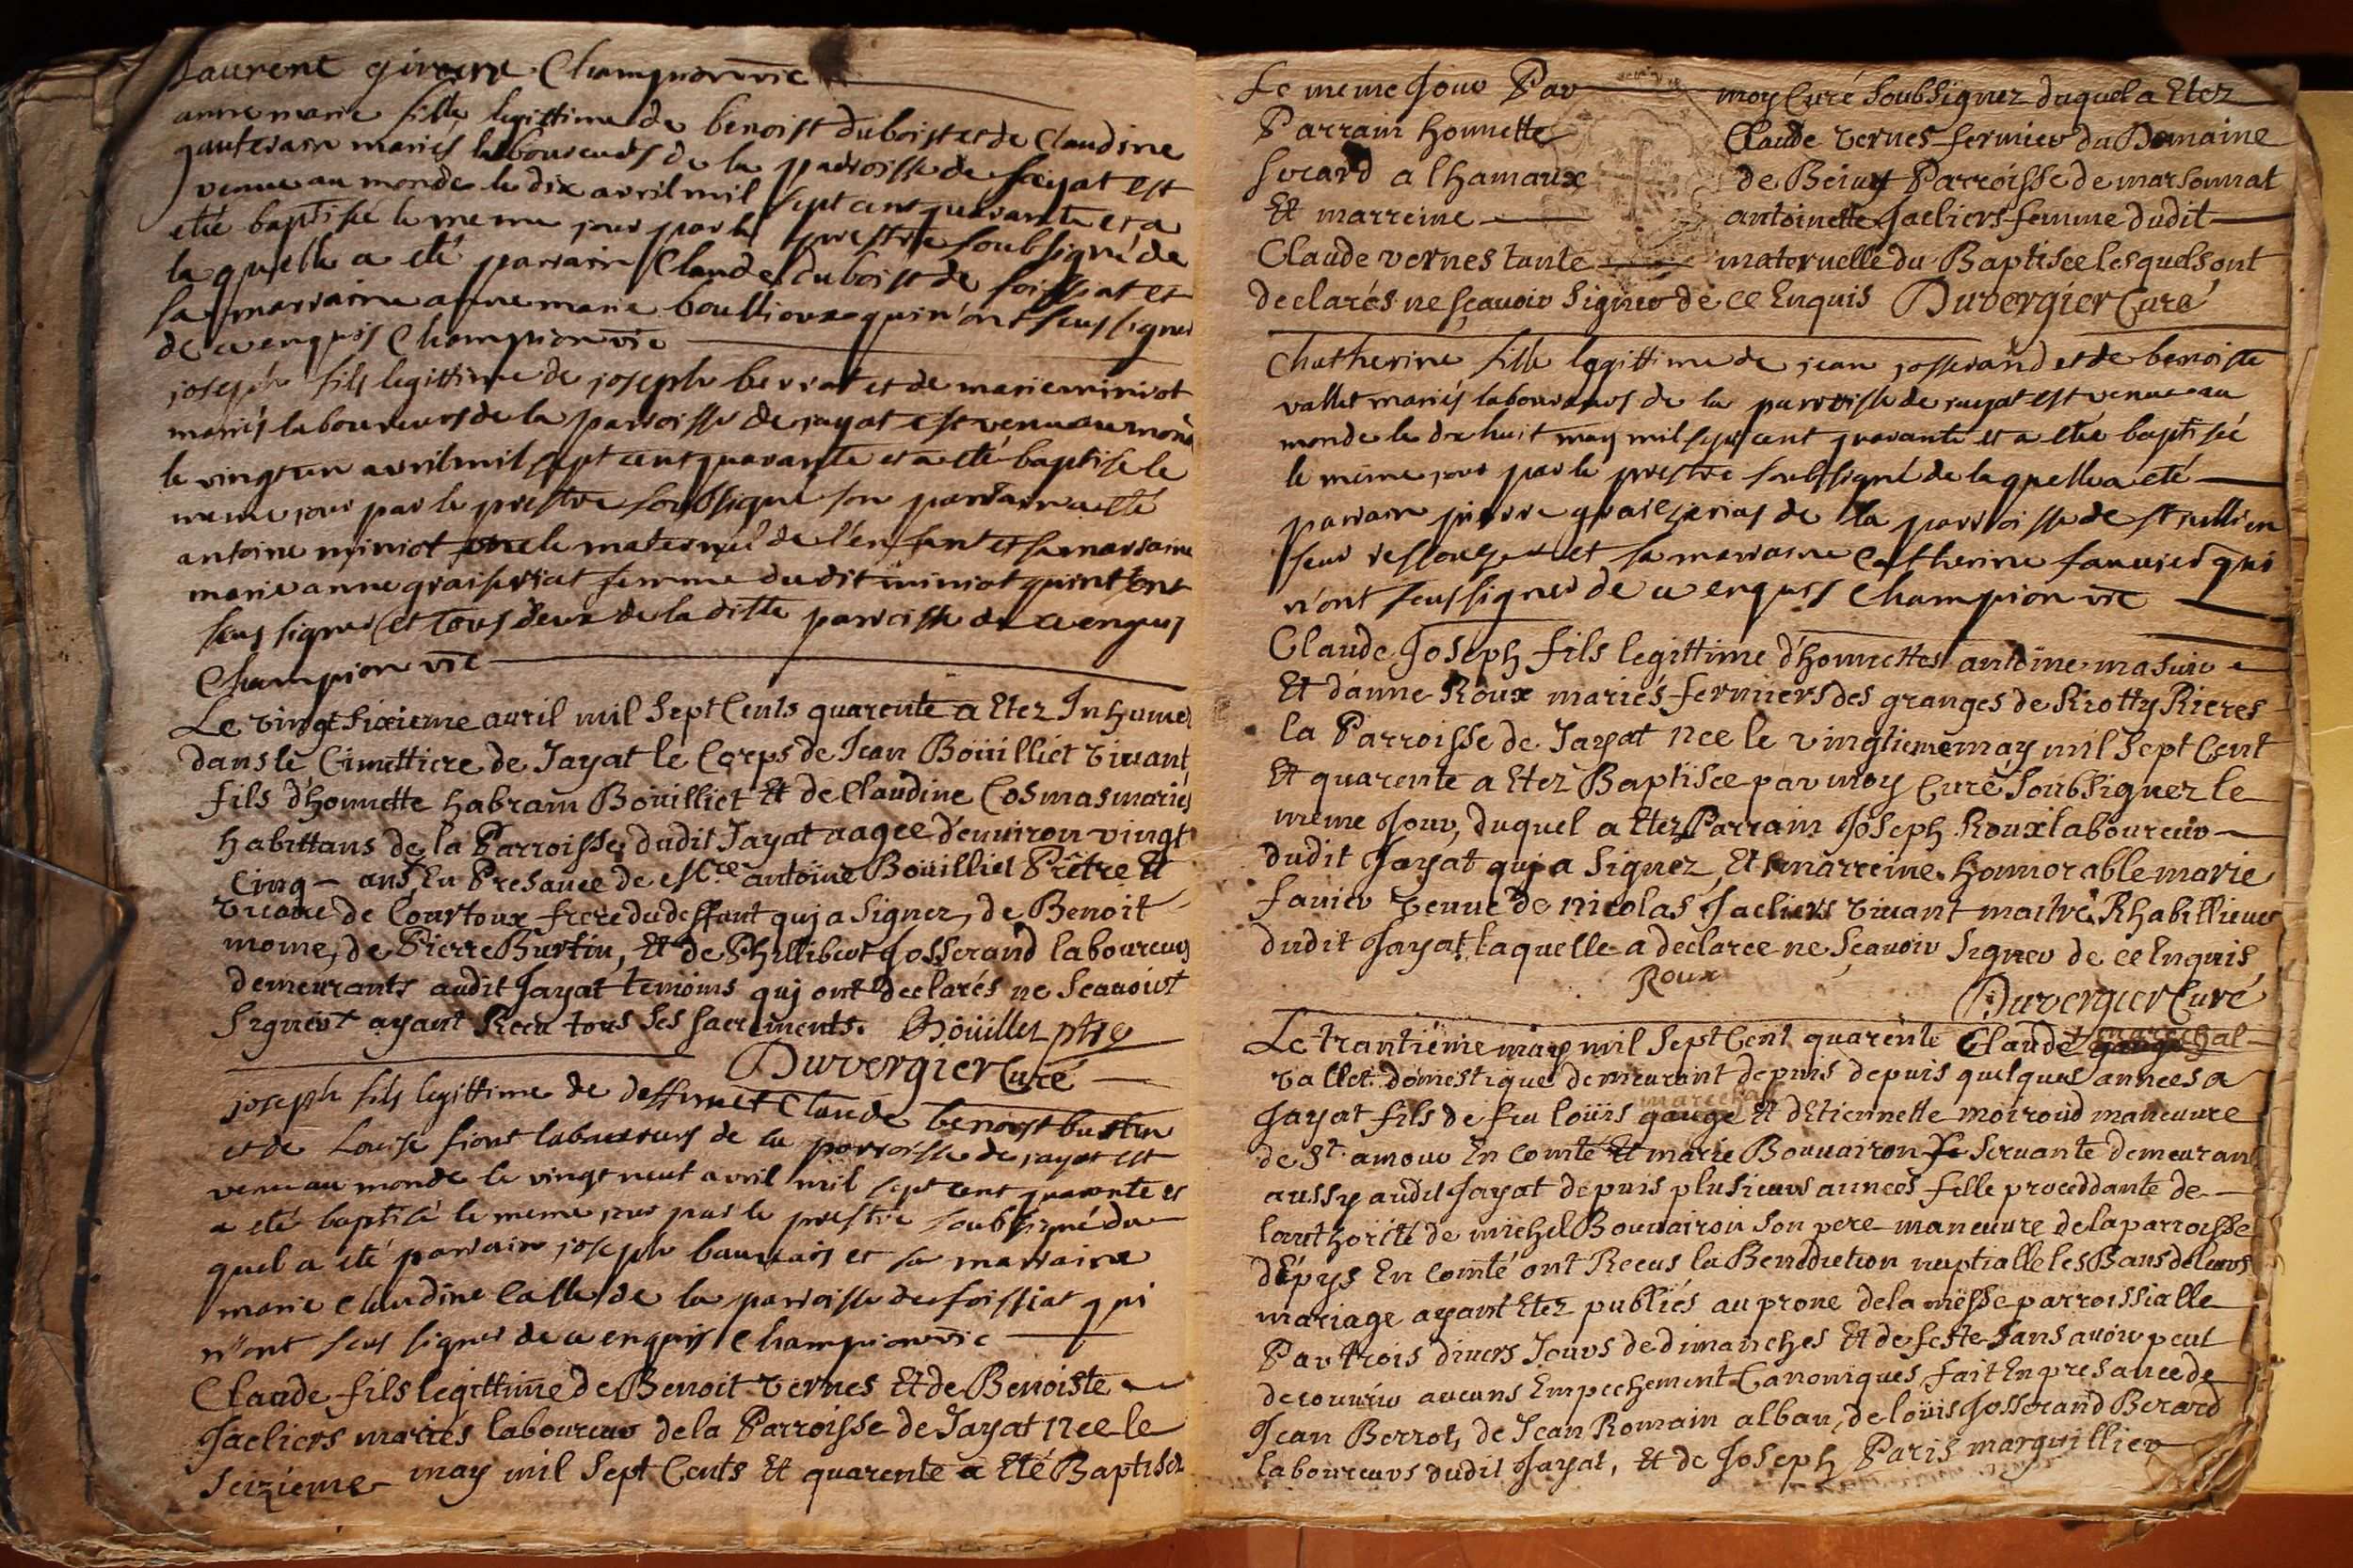 Laurent Championvic
anne marie fille legittime de benoist duboist et de Claudine
mariés laboureurs de la parroisse de jayat est
venue au monde le dix avril mil sept cent quarante et a
eté baptisée le meme jour par le prestre soubsigné de
la quelle a eté parrain Claude duboist de foissiat et
sa marraine anne marie boullioux qui n'ont seus signer
de ce enquis Championvic
joseph fils legittime de joseph berrat et de marie miniot
mariés laboureurs de la parroisse de jayat est venu au monde
le vingt un avril mil sept cent quarante et a eté baptisé le
meme jour par le prestre soubsigné son parrain a esté
antoine miniot oncle maternel de l'enfant et sa marraine
marie anne graiseriat femme dudit miniot qui n'ont
seus signer et tous deux de la ditte parroisse de ce enquis
Championvic
Le vingt sixieme avril mil Sept Cents quarente a Etez Inhumez
dans le Cimettiere de Jayat le Corps de Jean Boüilliet vivant
fils d'honnette habram Boüilliet Et de Claudine Cosmas mariés
habittans de la Parroisse dudit Jayat aagee d'environ vingt
Cinq - ans, En Presance de esCre antoine Boüilliet Prêtre Et
vicaire de Courtoux frere du deffunt quj a Signez, de Benoit
moine, de Pierre Burtin, Et de Phillibert Josserand laboureurs
demeurants audit Jayat temoins quj ont declarés ne Scavoir
Signer ayant Receu tous Ses sacrements. Boüillet ptre
Duvergier Curé
joseph fils legittime de deffunct Claude benoist burtin
et de Louise fiont laboureurs de la parroisse de jayat est
venu au monde le vingt neuf avril mil sept cent quarante et
a eté baptisé le meme jour par le prestre soubsigné du
quel a eté parrain joseph et sa marraine
marie Claudine Calle de la parroisse de foissiat qui
n'ont seus signer de ce enquis Championvic
Claude fils legittime de Benoit vernes Et de Benoiste
Jaeliers mariés laboureur de la Parroisse de Jayat nee le
Seizieme may mil Sept Cents Et quarente a Eté Baptisez
Le meme Jour Par moy Curé SoubSignez duquel a Etez
Parrain honnette Claude vernes fermier du Domaine
a lhamaux de Parroisse de marsonnat
Et marreine antoinette Jaeliers femme dudit
Claude vernes tante maternelle du Baptisee lesquels ont
declarés ne sçavoir Signer de ce Enquis Duvergier Curé
Chatherine fille legittime de jean josserand et de benoiste
vallet mariés laboureurs de la parroisse de jayat est venue au
monde le dix huit may mil sept cent quarante et a eté baptisée
le même jour par le prestre soubsigné de la quelle a eté
parrain pierre de la parroisse de st jullien
seur ressouze et sa marraine Catherine qui
n'ont seus signer de ce enquis Championvic
Claude Joseph fils legittime d'honnettes antoine masuir
Et d'anne Roux mariés fermiers des granges de Riotty Rieres
la Parroisse de Jayat nee le vingtieme may mil Sept Cent
Et quarente a Etez Baptisee par moy Curé SoubSignez le
meme Jour, duquel a Etez Parrain Joseph Roux laboureur
dudit Jayat quj a Signez, Et marreine honnorable marie
favier veuve de nicolas Jaeliers vivant maitre Rhabillieur
dudit Jayat, laquelle a declaree ne Sçavoir Signer de ce Enquis
Roux
Duvergier Curé
Le trantiéme may mil Sept Cent quarente Claude marechal
vallet domestique demeurant depuis depuis quelques annees a
marechal
Jayat fils de feu loüis gauge Et d'Etiennette moiroud maneuvre
de St. amour En Comté Et marie Bouvairon Servante demeurant
aussy audit Jayat depuis plusieurs annees fille proceddante de
lauthorité de michel Bouvairon Son pere maneuvre de la parroisse
d'Epys En Comté ont Receus la Benediction nuptialle les Bans de leurs
mariage ayant Etez publiés au prone de la messe parroissialle
Par trois divers Jours de dimanches Et de feste Sans avoir peut
decouvrir aucuns Empechement Canoniques, fait En presance de
Jean Berrot, de Jean Romain alban, de loüis Josserand Berard
laboureurs dudit Jayat, Et de Joseph Paris marguillier